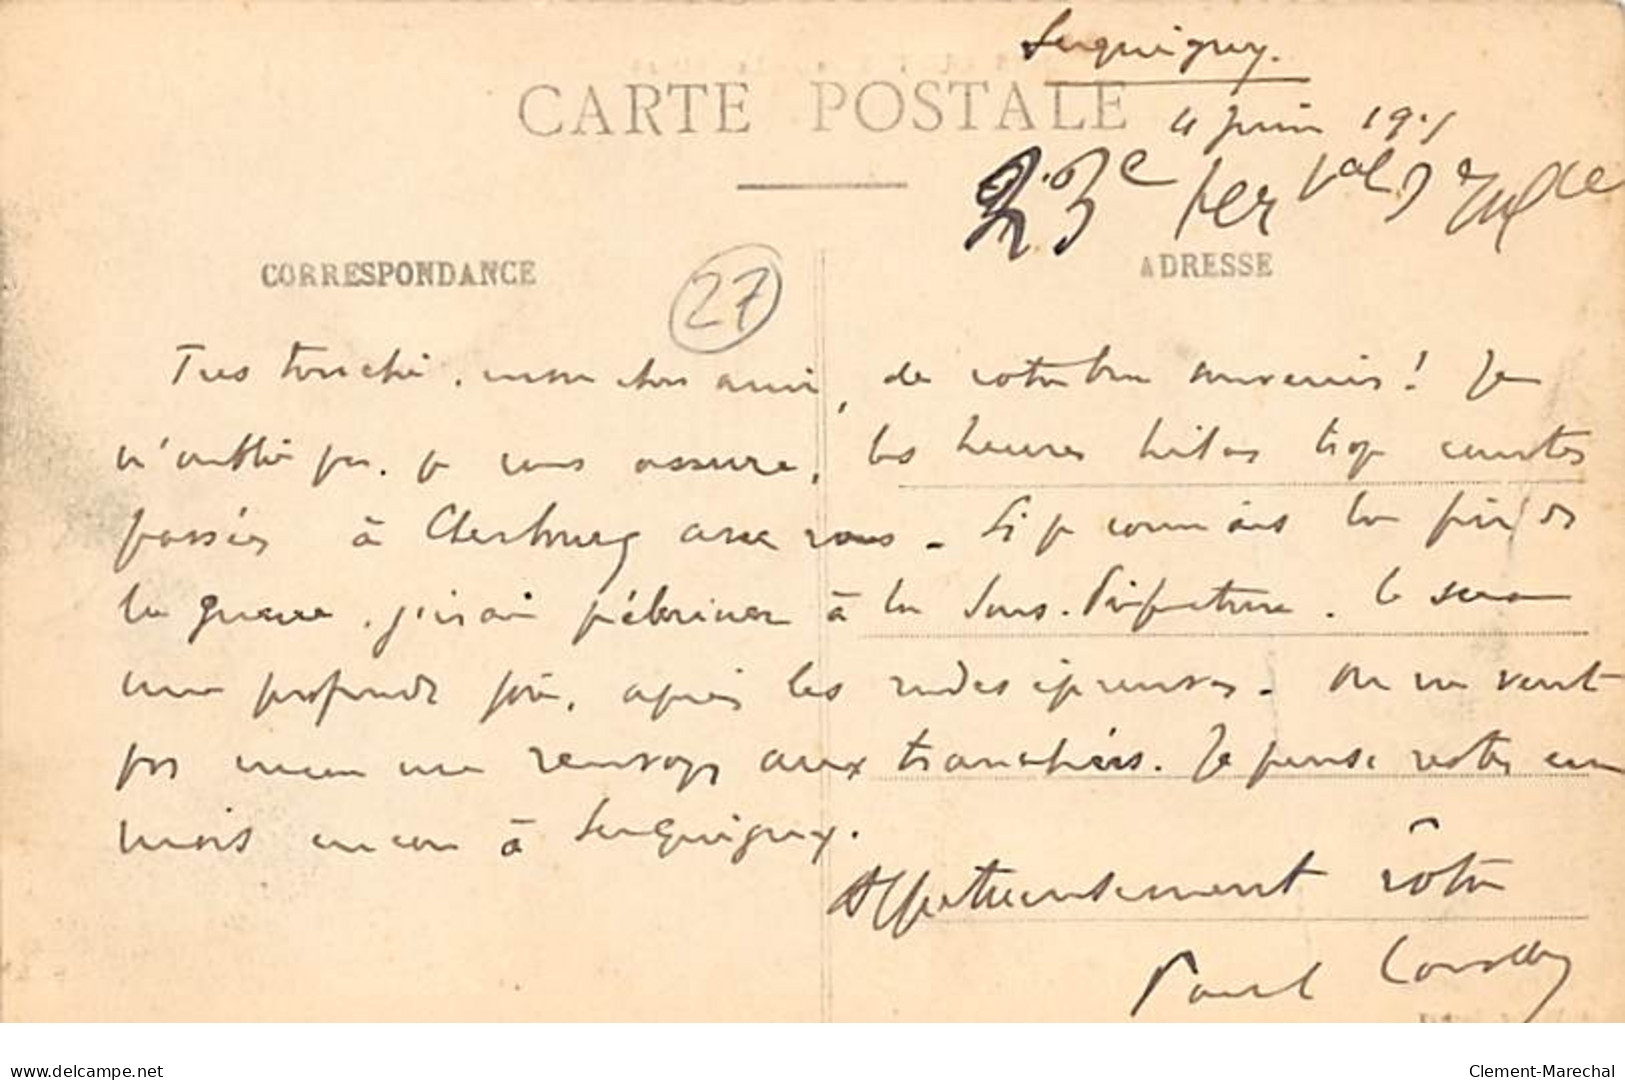 Serquigny.
CARTE POSTALE
4 juin 191
23e
CORRESPONDANCE
27
ADRESSE
Très touché, mon cher ami, de votre bon souvenir! Je
n'oublie pas, je vous assure, les heures hélas trop courtes
passées à Cherbourg avec vous. Si je connais la fin de
la guerre, j'irai pélériner à la Sous-Préfecture. Ce sera
une profonde joie, après les rudes épreuves. On ne veut
pas encore me renvoyer aux tranchées. Je pense rester un
mois encore à Serquigny.
Affectueusement vôtre
Paul
delcampe.net
Clement-Marechal